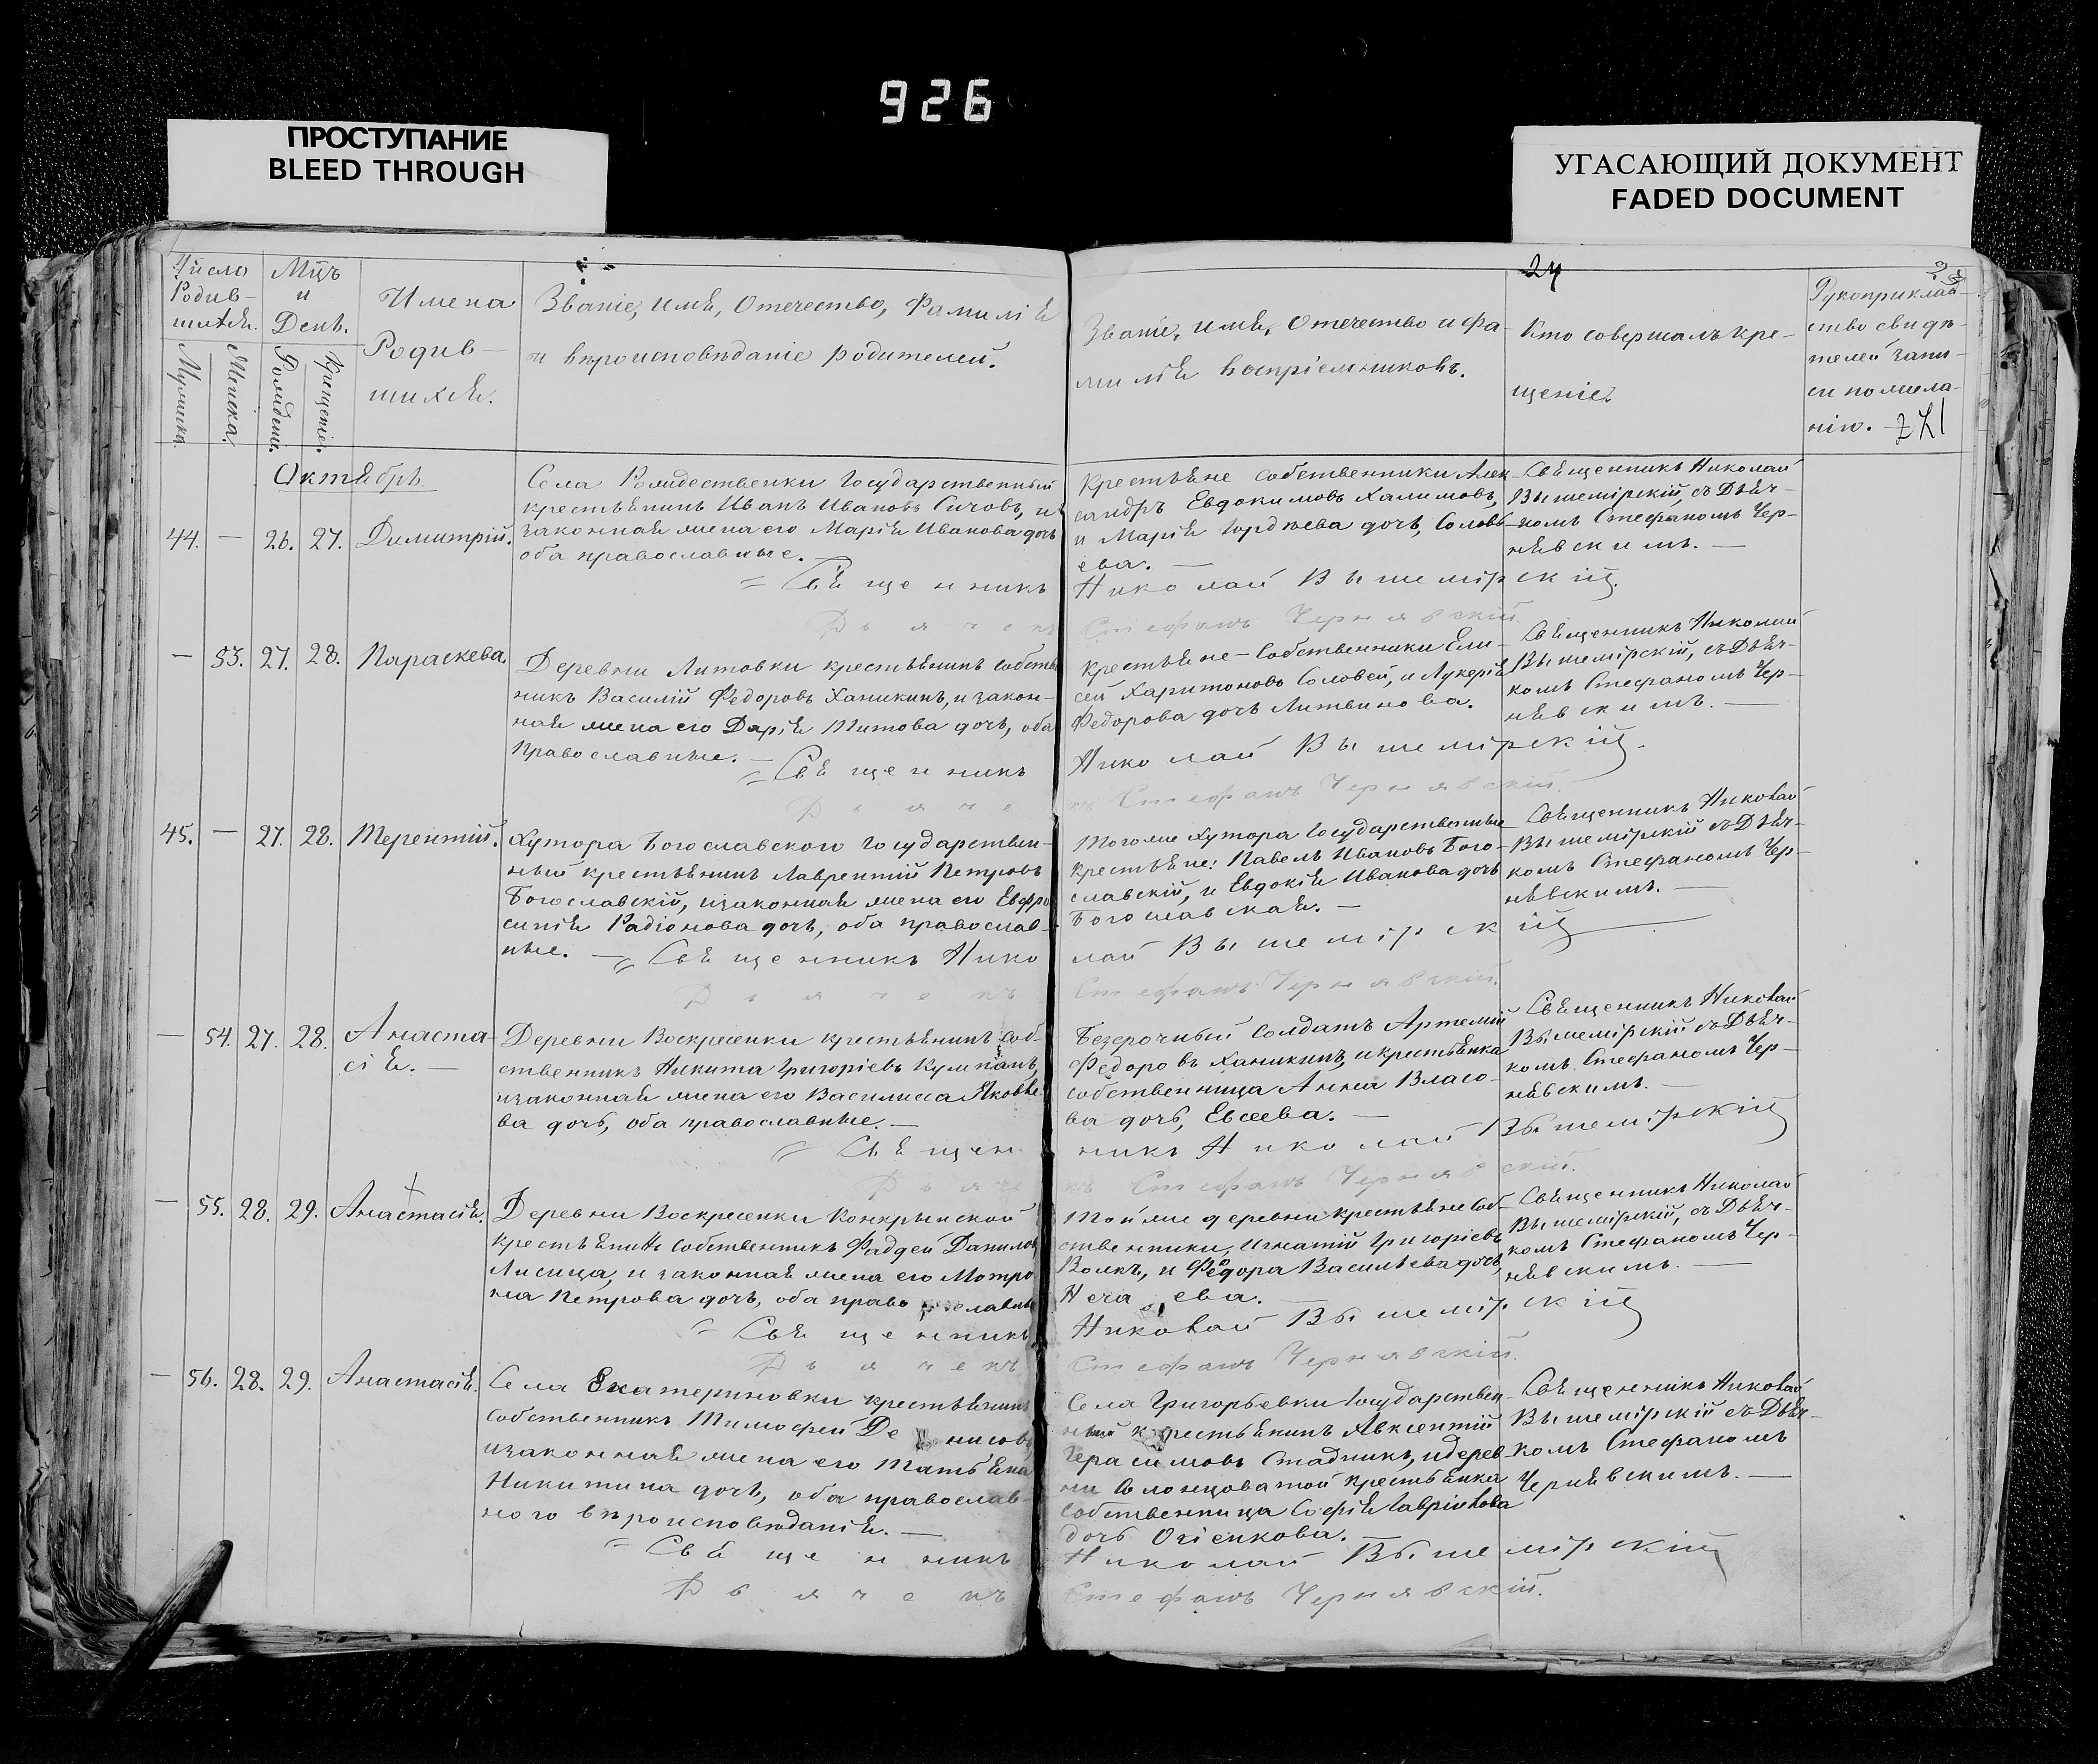 926
ПРОСТУПАНИЕ
BLEED THROUGH
УГАСАЮЩИЙ ДОКУМЕНТ
FADED DOCUMENT
24
Число
Родив-
шихся.
Мужеска.
Женска.
Мцъ
и
День.
Рожденія.
Крещенія.
Имена
Родив-
шихся.
Званіе, имя, Отечество, Фамилія
и вѣроисповѣданіе родителей.
Званіе, имя, Отечество и фа-
милія воспріемниковъ.
Кто совершалъ кре-
щеніе.
Рукоприклад-
ство свидѣ-
телей запи-
си по жела-
нію.
Октябрь
44. — 26. 27. Димитрій.
Села Рождественки Государственный
крестьянинъ Иванъ Ивановъ Сичовъ, и
законная жена его Марія Иванова дочь
оба православные. —
Крестьяне собственники Алек-
сандръ Евдокимовъ Халимовъ,
и Марія Гордѣева дочь, Соловь-
ева. —
Священникъ Николай
Вышемірскій, съ Дьяч-
комъ Стефаномъ Чер-
нявскимъ. —
= Священникъ Николай Вышемірскій.
Дьячекъ Стефанъ Чернявскій
— 53. 27. 28. Параскева.
Деревни Литовки крестьянинъ собствен
никъ Василій Федоровъ Ханикинъ, и закон-
ная жена его Дарія Титова дочь, оба
православные. —
Крестьяне-Собственники Ели-
сей Харитоновъ Соловей, и Лукерія
Федорова дочь Литвинова.
Священникъ Николай
Вышемірскій, съ Дьяч-
комъ Стефаномъ Чер-
нявскимъ. —
= Священникъ Николай Вышемірскій.
Дьячекъ Стефанъ Чернявскій.
45. — 27. 28. Терентій.
Хутора Богославского Государствен-
ный крестьянинъ Лаврентій Петровъ
Богославскій, изаконная жена его Евфро
синія Радіонова дочь, оба православ-
ные. —
Тогоже Хутора Государственные
крестьяне: Павелъ Ивановъ Бого-
славскій, и Евдокія Иванова дочь
Богославская. —
Священникъ Николай
Вышемірскій съ Дьяч-
комъ Стефаномъ Чер-
нявскимъ. —
= Священникъ Николай Вышемірскій
Дьячекъ Стефанъ Чернявскій.
— 54. 27. 28. Анаста-
сія. —
Деревни Воскресенки крестьянинъ соб-
ственникъ Никита Григоріевъ Кулпанъ,
изаконная жена его Василиса Яковле
ва дочь, оба православные. —
Безсрочный Солдатъ Артемій
Федоровъ Ханикинъ, и крестьянка
собственница Анна Власо-
ва дочь, Евсеева. —
Священникъ Николай
Вышемірскій съ Дьяч-
комъ Стефаномъ Чер-
нявскимъ. —
= Священникъ Николай Вышемірскій
Дьячекъ Стефанъ Чернявскій.
— 55. 28. 29. Анастасія.
Деревни Воскресенки Конкрынской
крестьянинъ собственникъ Фаддей Данилов
Лисица, и законная жена его Мотро
на Петрова дочь, оба православные
Тойже деревни крестьяне Соб-
ственники, Игнатій Григоріевъ
Волкъ, и Федора Васильева дочь,
Нечаева. —
Священникъ Николай
Вышемірскій, съ Дьяч-
комъ Стефаномъ Чер-
нявскимъ. —
= Священникъ Николай Вышемірскій
Дьячекъ Стефанъ Чернявскій.
— 56. 28. 29. Анастасія.
Села Екатериновки крестьянинъ
собственникъ Тимофей Денисовъ
изаконная жена его Татьяна
Никитина дочь, оба православ-
ного вѣроисповѣданія. —
Села Григорьевки Государствен-
ный крестьянинъ Авксентій
Герасимовъ Стадникъ, идерев-
ни Солонцоватой крестьянка
собственница Софія Гавріилова
дочь Огіенкова.
Священникъ Николай
Вышемірскій съ Дьяч-
комъ Стефаномъ
Чернявскимъ. —
= Священникъ Николай Вышемірскій
Дьячекъ Стефанъ Чернявскій.